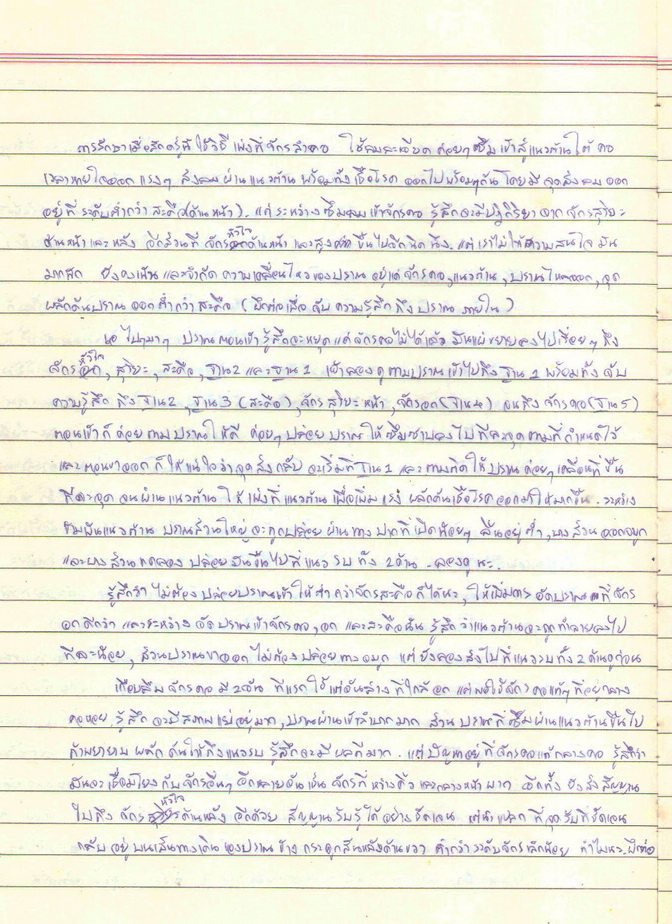 การรักษาเชื้อศัตรูนี้ ใช้วิธี เพ่งที่จักรลำคอ ใช้ลมละเอียด ค่อยๆซึม เข้าสู่แนวต้านใต้ คอ
เวลาหายใจออก แรงๆ ส่งลม ผ่านแนวต้าน พร้อมทั้ง เชื้อโรค ออกไปพร้อมๆกัน โดยมี จุดส่งลม ออก
อยู่ที่ ระดับต่ำกว่า สะดือ(ด้านหน้า). แต่ ระหว่างซึมลม เข้าจักรคอ รู้สึกจะมีปฏิกิริยา จาก จักรสุริยะ
ด้านหน้า และ หลัง อีกส่วนที่ จักรหัวใจด้านหน้า และสูง ขึ้นไปอีกนิดนึง. แต่ เราไม่ให้ความสนใจ มัน
มากนัก ยังคงเน้น และจำกัด ความเคลื่อนไหวของปราณ อยู่แค่ จักรคอ, แนวต้าน, ปราณไหลออก, จุด
ผลักดันปราณ ออกต่ำกว่า สะดือ ( ฝึกต่อเพื่อ จับ ความรู้สึก ถึง ปราณ ภายใน )
พอ ไปๆมาๆ ปราณตอนเข้า รู้สึกจะหยุด แค่ จักรคอไม่ได้แล้ว มันแผ่ขยายลงไปเรื่อยๆ ถึง
จักรหัวใจ, สุริยะ, สะดือ, ฐาน2 และ ฐาน 1 เข้าลองดู ตามปราณ เข้าไปถึง ฐาน 1 พร้อมทั้ง จับ
ความรู้สึก ถึง ฐาน2, ฐาน3 (สะดือ), จักร สุริยะ หน้า, จักรอก(ฐาน4) จนถึง จักรคอ(ฐาน5)
ตอนเข้าก็ ค่อยตามปราณให้ดี ค่อยๆ ปล่อย ปราณ ให้ซึมซาบลงไป ทีละจุด ตามที่ กำหนดไว้
และตอนขาออก ก็ ให้แน่ใจว่า จุด ส่งกลับ จะเริ่มที่ ฐาน 1 และตามติด ให้ ปราณ ค่อยๆ เคลื่อนที่ ขึ้น
ทีละจุด จนผ่าน แนวต้าน ให้ เพ่งที่ แนวต้าน เพื่อเพิ่ม แรง ผลักดันเชื้อโรค ออกมาให้มากขึ้น. ระหว่าง
แนวต้าน ปราณส่วนใหญ่ จะถูกปล่อย ผ่านทาง ปากที่เปิดน้อยๆ ลิ้นอยู่ ต่ำ, บางส่วน ออกจมูก
และบางส่วน ทดลอง ปล่อย มันขึ้นไปที่ แนว รบ ทั้ง 2 ด้าน. ลองดู นะ.
รู้สึกว่า ไม่ต้อง ปล่อยปราณเข้า ให้ต่ำ กว่าจักรสะดือ ก็ ได้นะ, ให้เพิ่มการ อัดปราณ ที่ จักร
อก ดีกว่า และระหว่าง อัด ปราณ เข้าจักรคอ, อก และสะดือนั้น รู้สึกว่าแนวต้านจะถูกทำลายลงไป
ทีละน้อย, ส่วนปราณขาออก ไม่ต้อง ปล่อยทางจมูก แต่ ยังลองส่งไปที่แนวรบทั้ง 2 ด้านดูก่อน
เกือบลืม จักรคอ มี 2 อัน ที่แรก ใช้แต่อันล่าง ที่ใกล้อก แต่ จักร คอแท้ๆ ที่อยู่กลาง
คอหอย รู้สึก จะมีสภาพแย่อยู่มาก, ปราณผ่านเข้าลำบากมาก ส่วน ปราณที่ซึมผ่านแนวต้านขึ้นไป
ถ้าพยายาม ผลัก ดันให้ถึงแนวรบ รู้สึกจะมี ผลดีมาก. แต่ ปัญหาอยู่ที่จักรคอแท้กลางคอ รู้สึกว่า
มันจะเชื่อมโยง กับ จักรอื่นๆ อีกหลายอันเช่น จักรที่ หว่างคิ้ว และกลางหน้าผาก อีกทั้ง ยังส่งสัญญาณ
ไปถึง จักรหัวใจด้านหลัง อีกด้วย สัญญาณ รับรู้ ได้อย่างชัดเจน แต่น่าแปลก ที่จุดรับที่ชัดเจน
กลับ อยู่ บนเส้นทางเดิน ของปราณ ข้าง กระดูกสันหลังด้านขวา ต่ำกว่า ระดับจักรเล็กน้อย ทำไมนะ. ฝึกต่อ